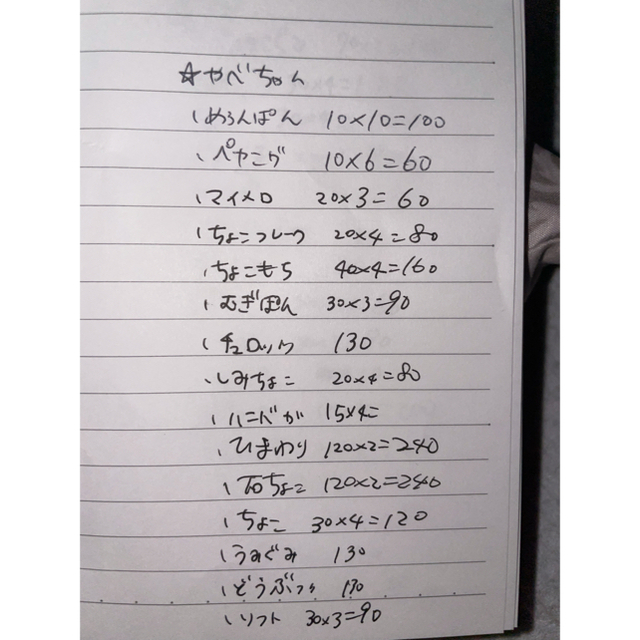 ☆やべちゃん
、めろんぱん 10×10=100
、ペヤング 10×6=60
、マイメロ 20×3=60
、ちょこフレーク 20×4=80
、ちょこもち 40×4=160
、むぎぽん 30×3=90
、チュロッツ 130
、しみちょこ 20×4=80
、ハニバタ 15×4=
、ひまわり 120×2=240
、ちょこ 120×2=240
、ちょこ 30×4=120
、うみぐみ 130
、どうぶつ 130
、ソフト 30×3=90